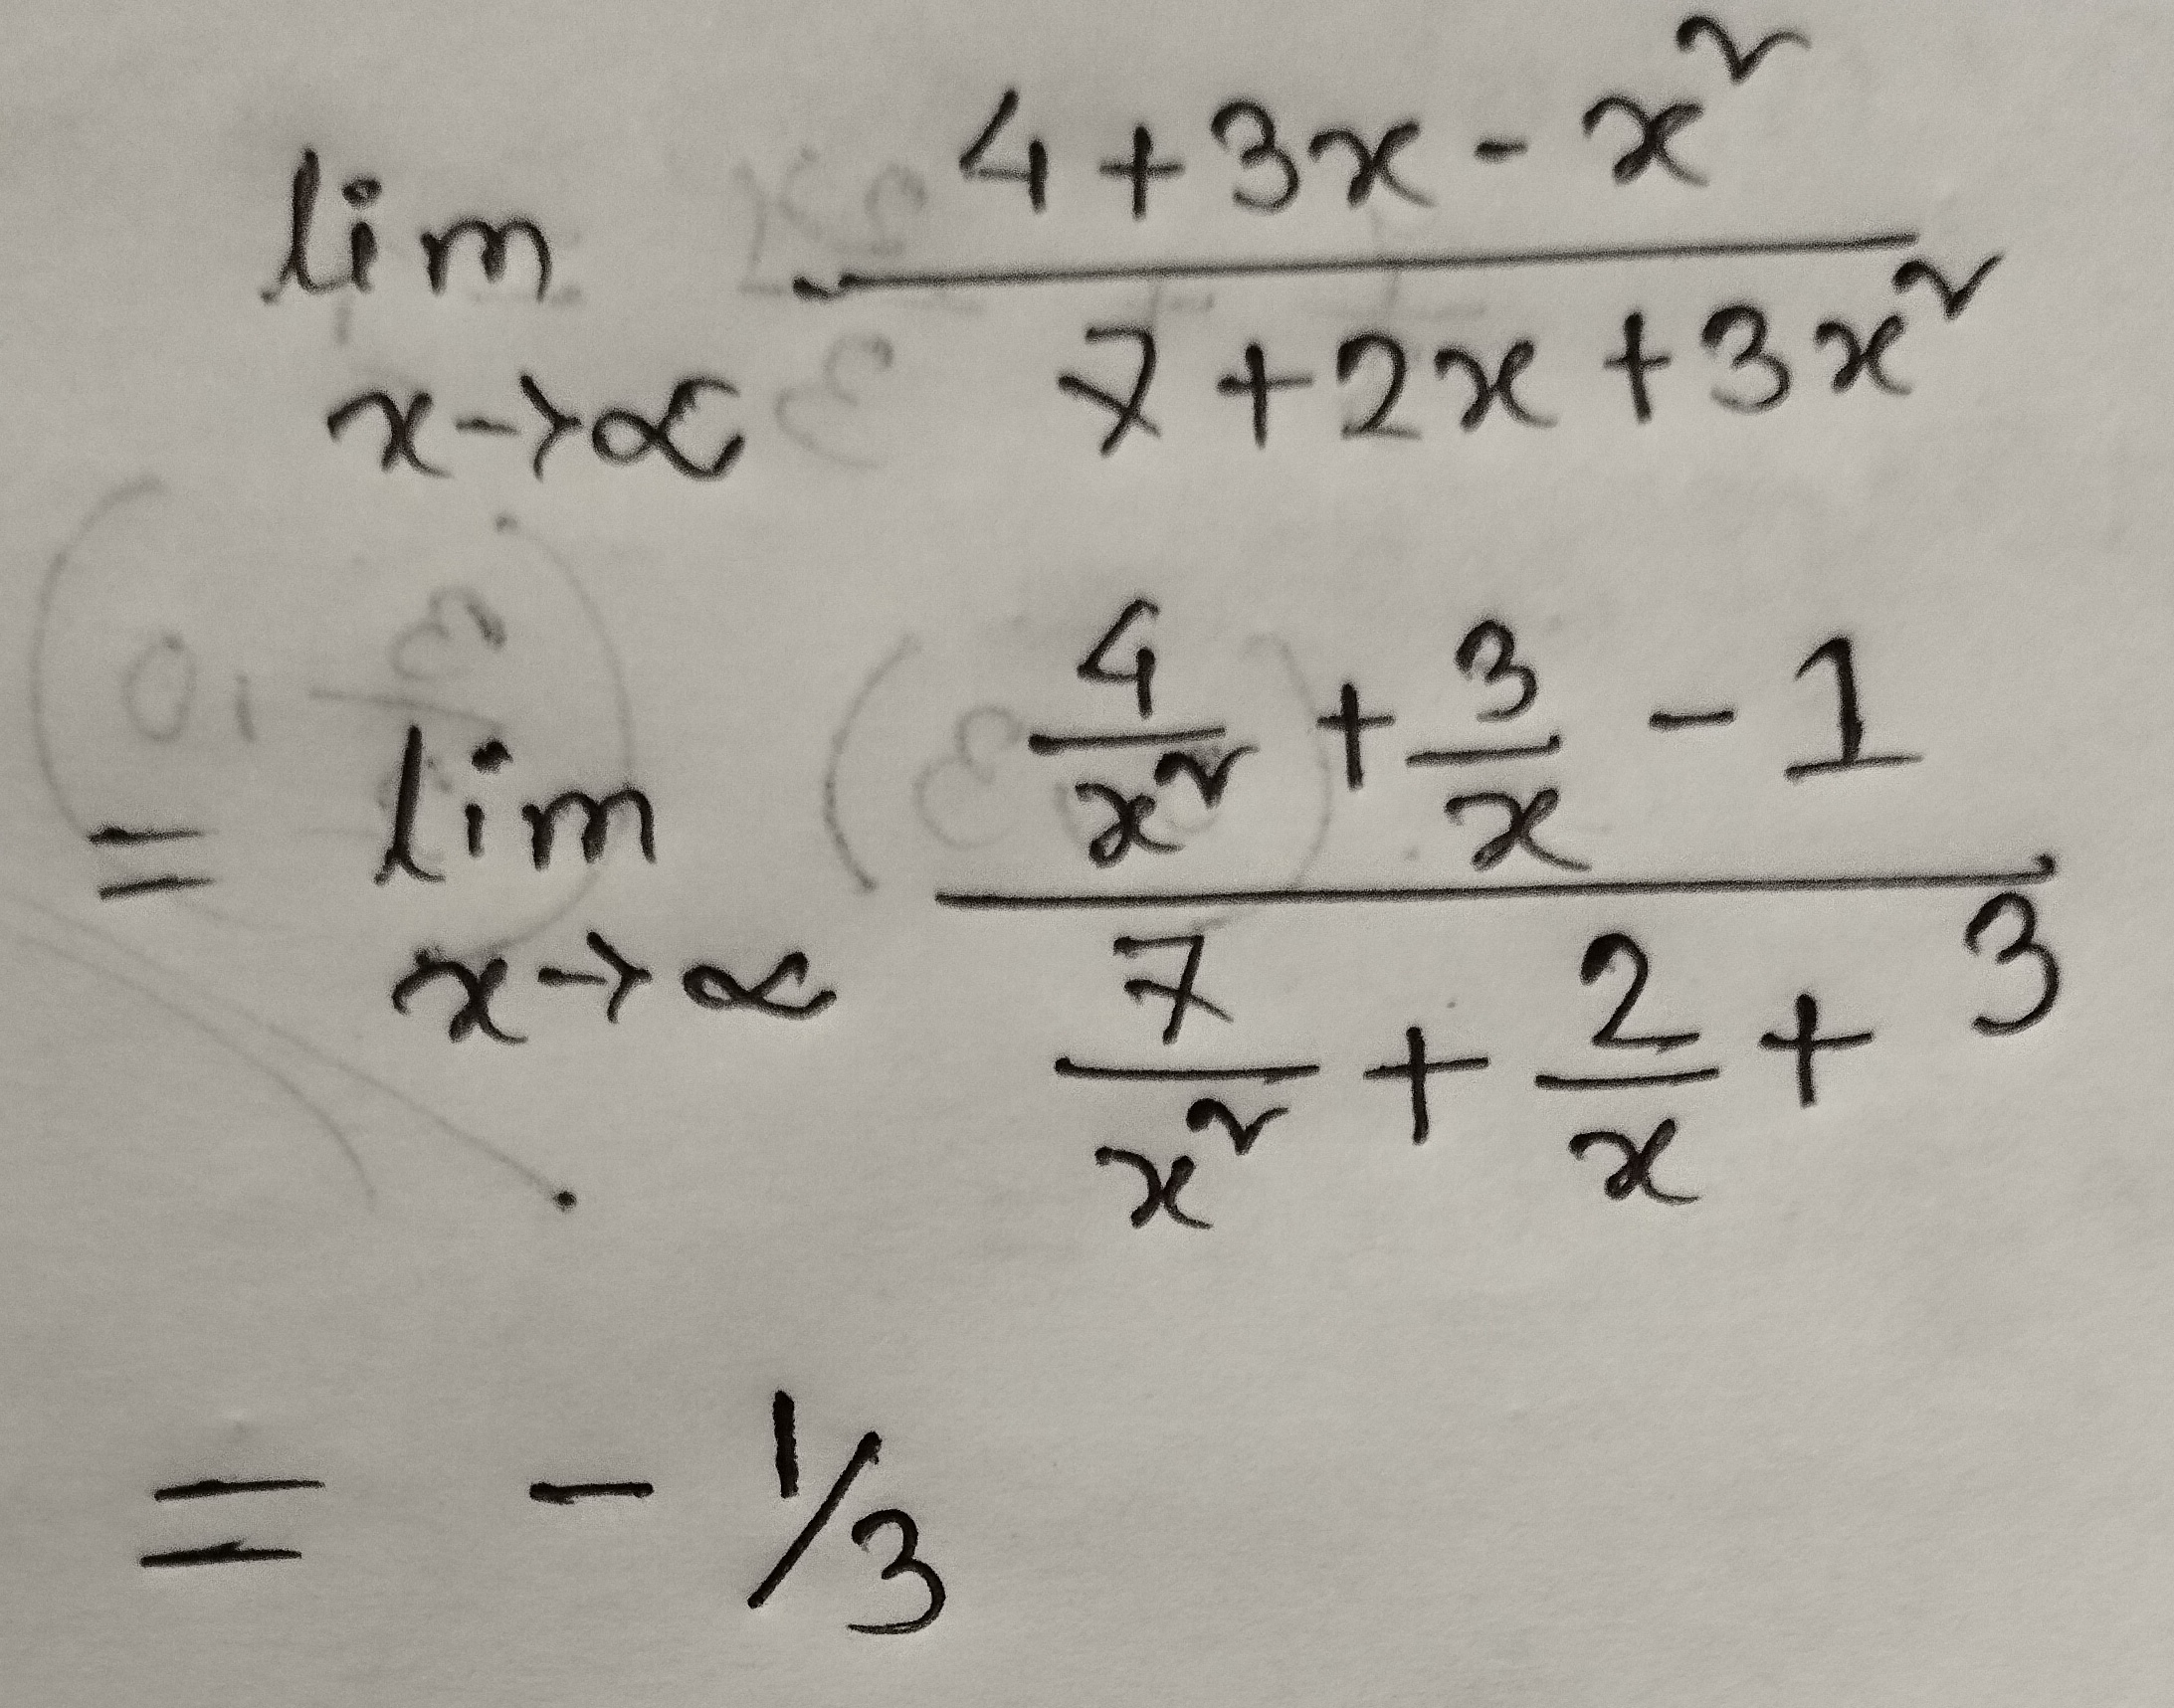 lim x→∞ (4 + 3x - x²)/(7 + 2x + 3x²)
= lim x→∞ (4/x² + 3/x - 1)/(7/x² + 2/x + 3)
= - 1/3